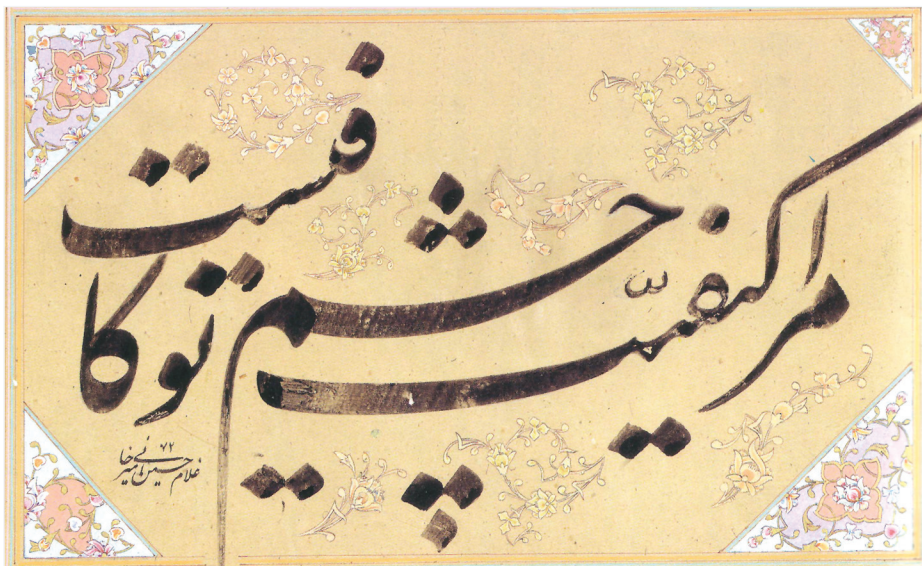 مرا کیفیّت چشم تو کافیست
غلامحسین امیرخانی ۷۲